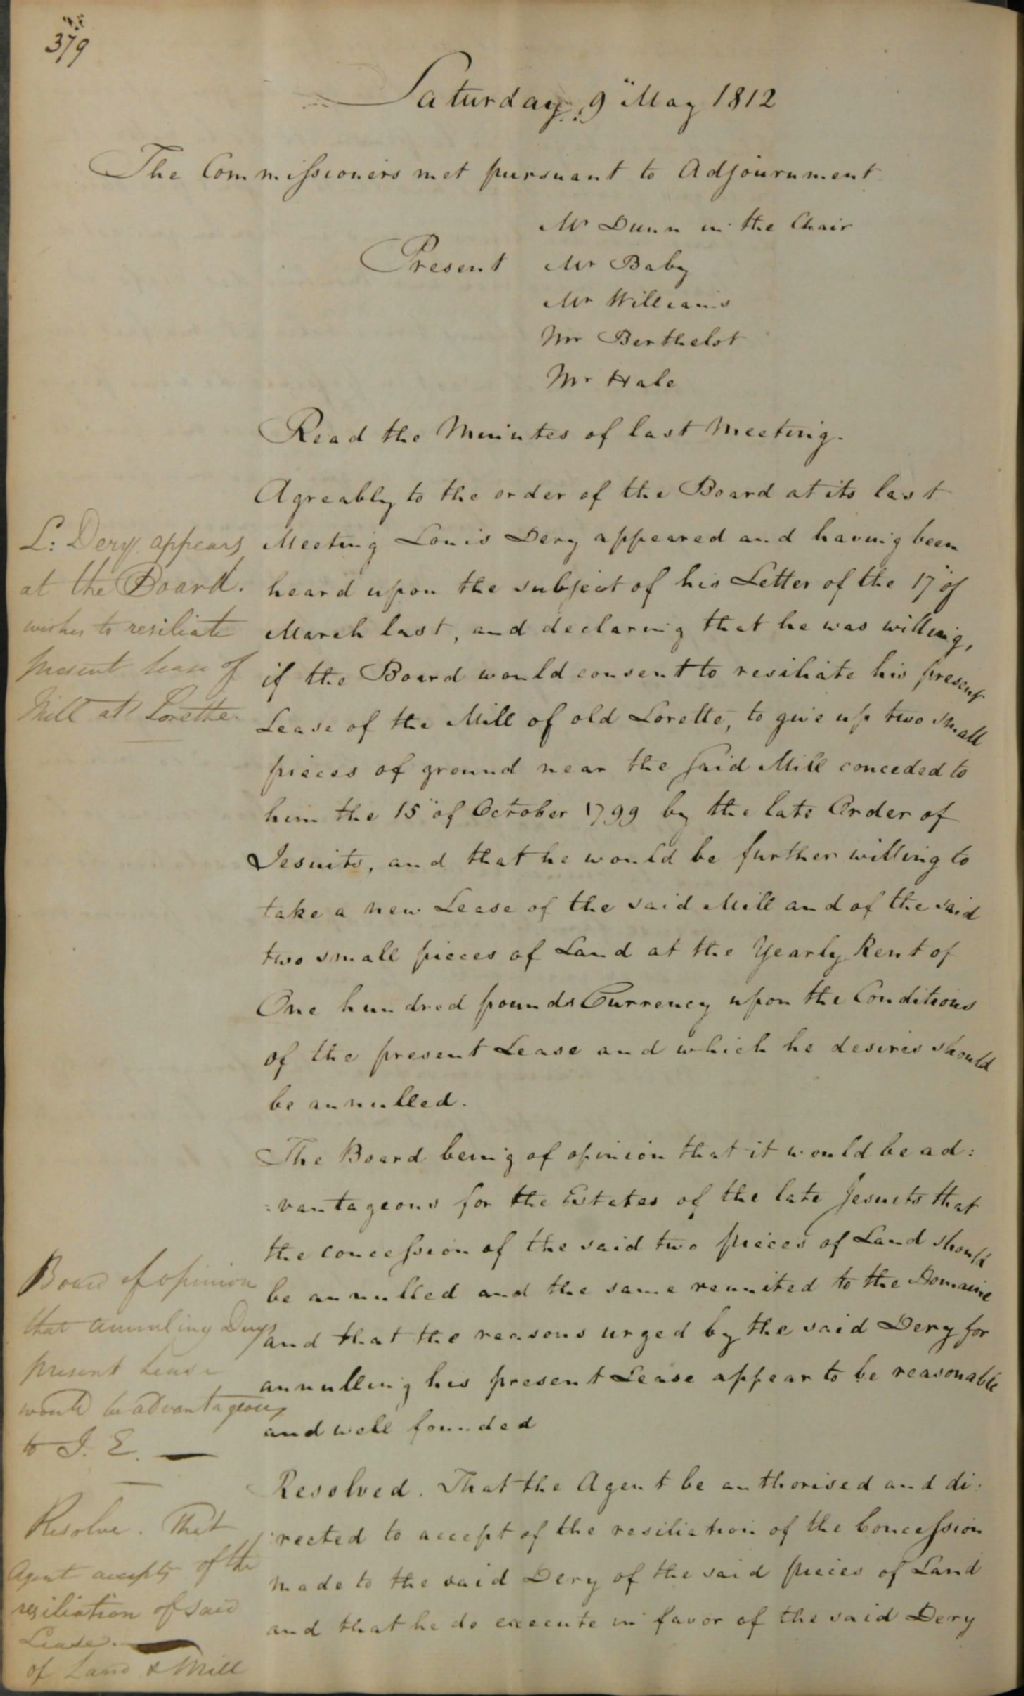 379
Saturday 9" May 1812
The Commissioners met pursuant to Adjournment
Mr Dunn in the Chair
Present Mr Baby
Mr Williams
Mr Berthelot
Mr Hale
Read the Minutes of last Meeting.
Agreably to the order of the Board at its last
Meeting Louis Dery appeared and having been
heard upon the subject of his Letter of the 17" of
March last, and declaring that he was willing,
if the Board would consent to resiliate his present
Lease of the Mill of old Lorette, to give up two small
pieces of ground near the said Mill conceded to
him the 15" of October 1799 by the late Order of
Jesuits, and that he would be further willing to
take a new Lease of the said Mill and of the said
two small pieces of Land at the Yearly Rent of
One hundred pounds Currency upon the Conditions
of the present Lease and which he desires should
be annulled.
The Board being of opinion that it would be ad:
:vantageous for the Estates of the late Jesuits that
the concession of the said two pieces of Land should
be annulled and the same reunited to the Domaine
and that the reasons urged by the said Dery for
annulling his present Lease appear to be reasonable
and well founded
Resolved. That the Agent be authorised and di:
:rected to accept of the resiliation of the Concession
made to the said Dery of the said pieces of Land
and that he do execute in favor of the said Dery
L: Dery appears
at the Board.
wishes to resiliate
present lease of
Mill at Lorette.
Board of opinion
that annuling Derys
present Lease
would be advantageous
to J. E. —
Resolve. That
Agent accepts of the
resiliation of said
Lease. —
of Land & Mill